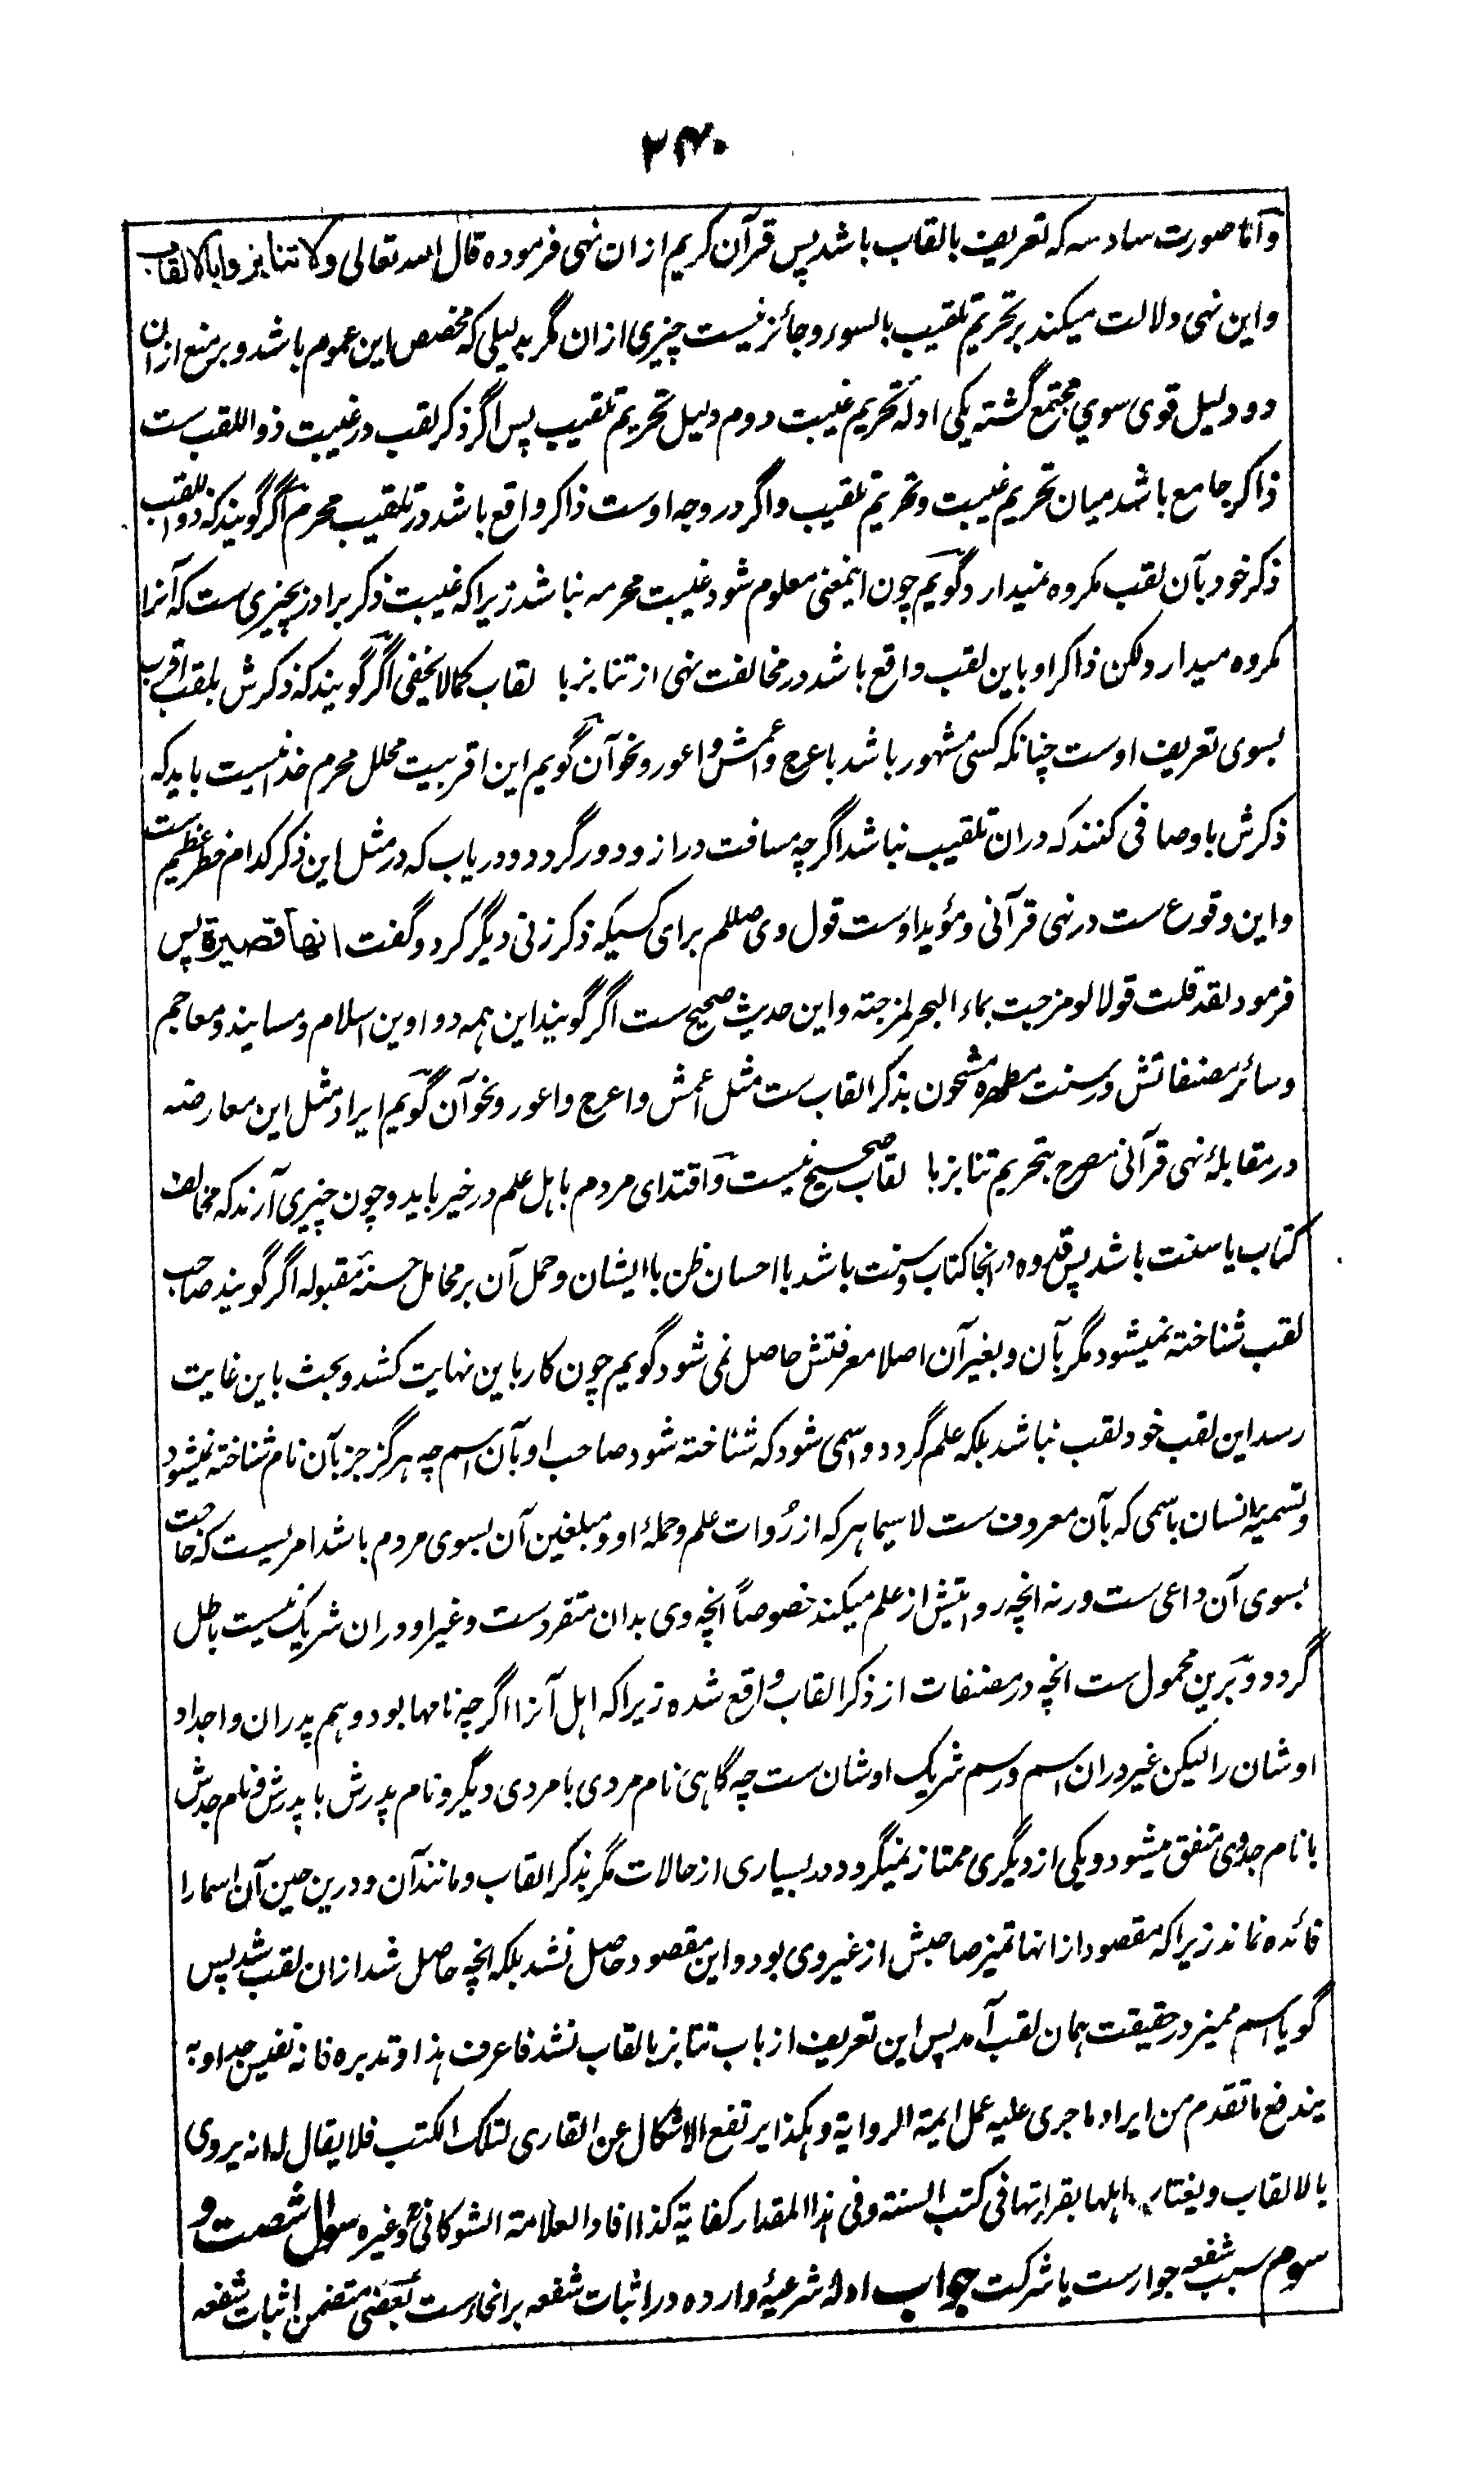 ۲۴۰
و اما صورت سادسه که تعریف بالقاب باشد پس قرآن کریم ازان نهی فرموده قال الله تعالی ولا تنابزوا بالالقاب
و این نهی دلالت میکند بر تحریم تلقیب بالسوء و جائز نیست چیزی ازان مگر بدلیلی که مخصص این عموم باشد و بر منع ازان
دو دلیل قوی سوی مجتمع گشته یکی ادلهٔ تحریم غیبت دوم دلیل تحریم تلقیب پس اگر ذکر لقب در غیبت ذو اللقب ست
ذاکر جامع باشد میان تحریم غیبت و تحریم تلقیب و اگر در وجه اوست ذاکر واقع باشد در تلقیب محرم اگر گویند که ذو اللقب
ذکر خود بآن لقب مکروه نمیدارد گویم چون اینمعنی معلوم شود غیبت محرمه نباشد زیرا که غیبت ذکر برادر بچیزی ست که آنرا
مکروه میدارد ولکن ذاکر او باین لقب واقع باشد در مخالفت نهی از تنابز با لقاب کما لا یخفی اگر گویند که ذکرش بلقب اقرب
بسوی تعریف اوست چنانکه کسی مشهور باشد باعرج و اعمش و اعور و نحو آن گویم این اقربیت محلل محرم خدا نیست باید که
ذکرش باوصافی کنند که دران تلقیب نباشد اگرچه مسافت دراز و دور گردد و دریاب که در مثل این ذکر کدام خطر عظیم ست
و این وقوع ست در نهی قرآنی و مؤید اوست قول وی صللم برای کسیکه ذکر زنی دیگر کرد و گفت انها قصیرة پس
فرمود لقد قلت قولا لو مزجت بماء البحر لمزجته و این حدیث صحیح ست اگر گویند این همه دواوین اسلام و مسانید و معاجم
و سائر مصنفاتش در سنت مطهره مشحون بذکر القاب ست مثل اعمش و اعرج و اعور و نحو آن گویم ایراد مثل این معارضه
در مقابلهٔ نهی قرآنی مصرح بتحریم تنابز با لقاب صحیح نیست و اقتدای مردم باهل علم در خیر باید و چون چیزی آرند که مخالف
کتاب یا سنت باشد پس قدوه در انجا کتاب و سنت باشد با احسان ظن با ایشان و حمل آن بر محامل حسنهٔ مقبوله اگر گویند صاحب
لقب شناخته نمیشود مگر بآن و بغیر آن اصلا معرفتش حاصل نمی شود گویم چون کار باین نهایت کشد و بحث باین غایت
رسد این لقب خود لقب نباشد بلکه علم گردد و اسمی شود که شناخته شود صاحب او بآن اسم چه هرگز جز بآن نام شناخته نمیشود
و تسمیهٔ انسان باسمی که بآن معروف ست لا سیما هر که از رُوات علم و حملهٔ او و مبلغین آن بسوی مردم باشد امریست که حاجت
بسوی آن داعی ست ورنه انچه روایتش از علم میکند خصوصاً انچه وی بدان متفردست و غیر او دران شریک نیست باطل
گردد و برین محمول ست انچه در مصنفات از ذکر القاب واقع شده زیرا که اهل آنرا اگرچه نامها بود و هم پدران و اجداد
اوشان را لیکن غیر دران اسم و رسم شریک اوشان ست چه گاهی نام مردی با مردی دیگر و نام پدرش با پدرش و نام جدش
با نام جد وی متفق میشود و یکی از دیگری ممتاز نمیگردد در بسیاری از حالات مگر بذکر القاب و مانند آن و درین حین آن اسما را
فائده نماند زیرا که مقصود ازانها تمیز صاحبش از غیر وی بود و این مقصود حاصل نشد بلکه انچه حاصل شد ازان لقب شد پس
گویا اسم ممیز در حقیقت همان لقب آمد پس این تعریف از باب تنابز بالقاب نشد فاعرف هذا وتدبره فانه نفیس جدا و به
یندفع ما تقدم من ایراد ما جری علیه عمل ایمة الروایة وهکذا یرتفع الاشکال عن القاری لتلک الکتب فلا یقال له انه یروی
بالالقاب ویغتاب اهلها بقراءتها فی کتب السنة وفی هذا المقدار کفایة کذا افاد العلامة الشوکانی رح وغیره سوال شصت و
سوم سبب شفعه جوارست یا شرکت جواب ادلهٔ شرعیهٔ وارده در اثبات شفعه بر انحاءست بعضی متضمن اثبات شفعه